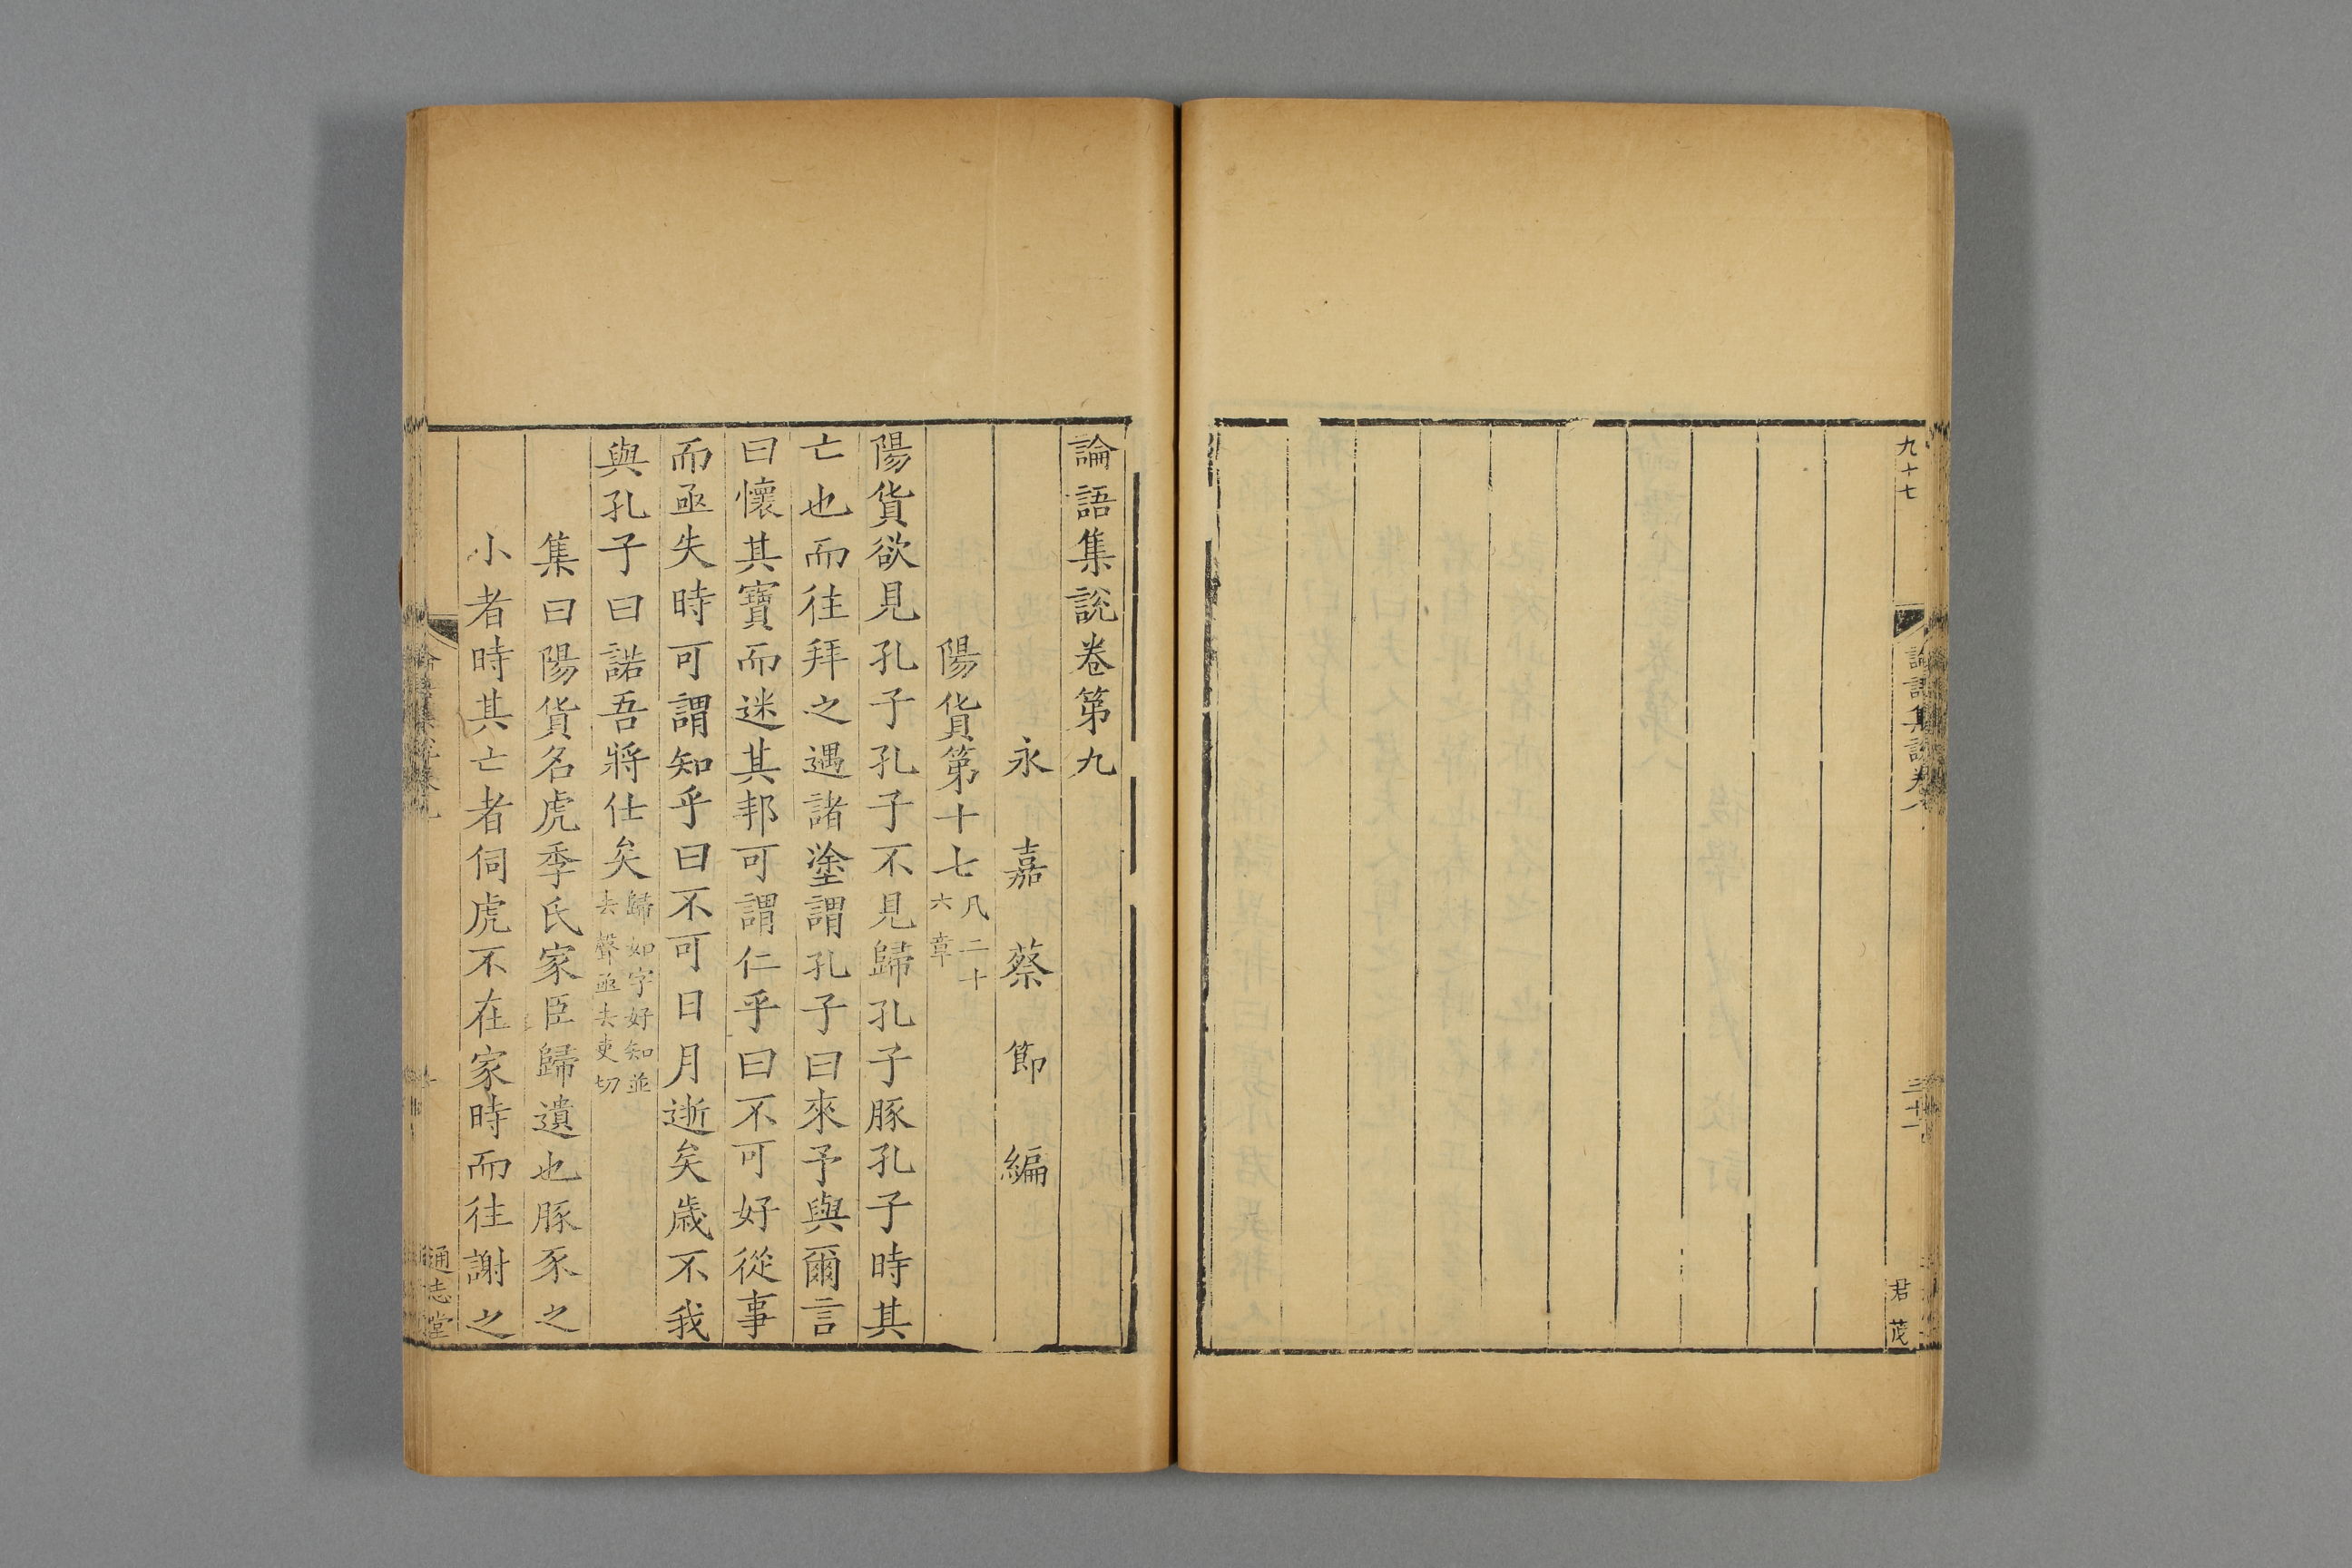 九十七
論語集說卷八
三十一
君茂
論語集說卷第九
永嘉蔡節編
陽貨第十七凡二十六章
陽貨欲見孔子孔子不見歸孔子豚孔子時其
亡也而徃拜之遇諸塗謂孔子曰來予與爾言
曰懷其寶而迷其邦可謂仁乎曰不可好從事
而亟失時可謂知乎曰不可日月逝矣歳不我
與孔子曰諾吾將仕矣歸如字好知並去聲亟去吏切
集曰陽貨名虎季氏家臣歸遺也豚豕之
小者時其亡者伺虎不在家時而徃謝之
論語集說卷九
一
通志堂